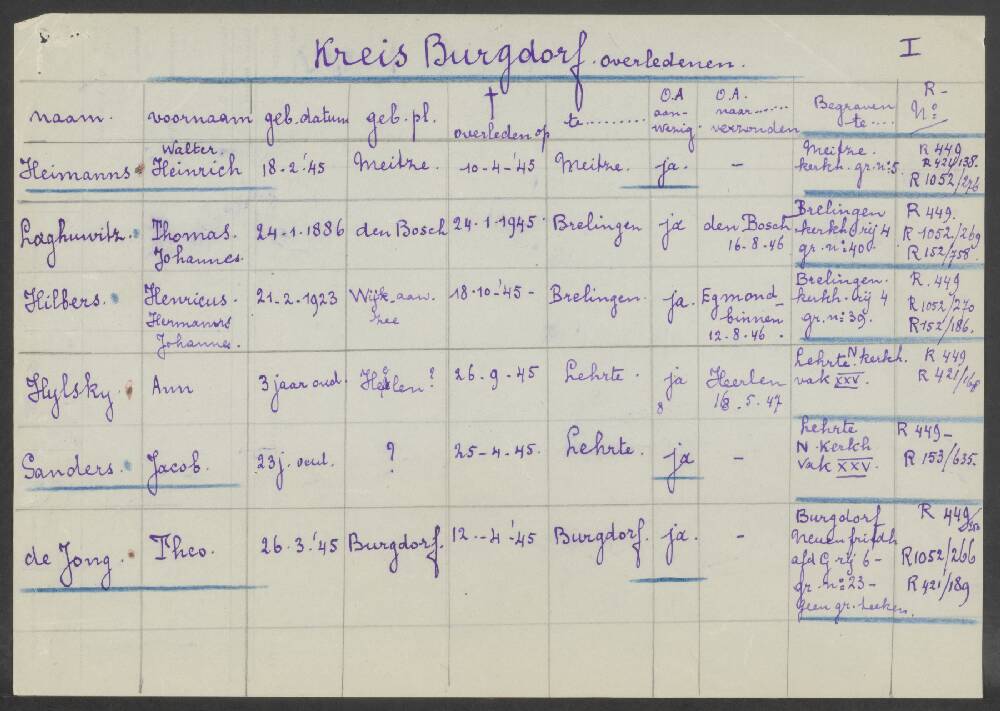 Kreis Burgdorf overledenen. I
naam. voornaam geb. datum geb. pl. † overleden op te.......... O.A aan-wezig. O.A. naar....... verzonden Begraven te.... R- No:
Heimanns Walter. Heinrich 18-2-'45 Meitze. 10-4-'45 Meitze. ja. - Meitze. kerkh. gr. no: 5. R 449 R 421/138. R 1052/276
Thomas. Johannes. 24-1-1886 den Bosch 24-1-1945. Brelingen ja den Bosch 16-8-46 Brelingen kerkh. rij 4 gr. no: 40. R 449. R 1052/269 R 152/758.
Hilbers. Henricus. Hermanus Johannes. 21-2-1923 Wijk aan zee 18-10-'45- Brelingen. ja. Egmond-binnen 12-8-46. Brelingen. kerkh. rij 4 gr. no: 39. R. 449 R 1052/270 R 152/186.
Hylsky. Ann 3 jaar oud. ? 26-9-45 Lehrte. ja 8 Heerlen 5-47 Lehrte N. kerkh. vak XXV. R 449 R 421/168
Sanders. Jacob. 23 j. oud. ? 25-4-45. Lehrte. ja - Lehrte N. Kerkh vak XXV. R 449- R 153/635.
de Jong. Theo. 26.3.'45 Burgdorf. 12-4-'45 Burgdorf. ja. - Burgdorf Neuenfriedh. afd G rij 6- gr. no: 23- geen gr. teeken. R 449 R 1052/266 R 421/189